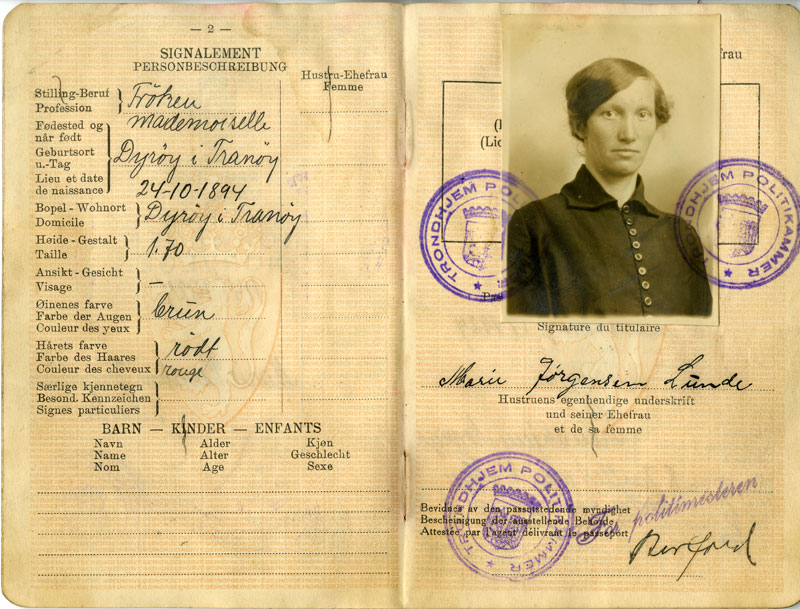 — 2 —
SIGNALEMENT
PERSONBESCHREIBUNG
Hustru-Ehefrau
Femme
Stilling-Beruf
Profession
Fröken
Mademoiselle
Fødested og
når født
Geburtsort
u.-Tag
Lieu et date
de naissance
Dyröy i Tranöy
24-10-1894
Bopel - Wohnort
Domicile
Dyröy i Tranöy
Høide - Gestalt
Taille
1.70
Ansikt - Gesicht
Visage
—
Øinenes farve
Farbe der Augen
Couleur des yeux
brun
Hårets farve
Farbe des Haares
Couleur des cheveux
rödt
rouge
Særlige kjennetegn
Besond. Kennzeichen
Signes particuliers
BARN — KINDER — ENFANTS
Navn Alder Kjøn
Name Alter Geschlecht
Nom Age Sexe
frau
TRONDHJEM POLITIKAMMER
TRONDHJEM POLITIKAMMER
Signature du titulaire
Marie Jørgensen Lunde
Hustruens egenhendige underskrift
und seiner Ehefrau
et de sa femme
TRONDHJEM POLITIKAMMER
Bevidnes av den passutstedende myndighet
Bescheinigung der ausstellende Behörde
Attestée par l'agent délivrant le passeport
For politimesteren